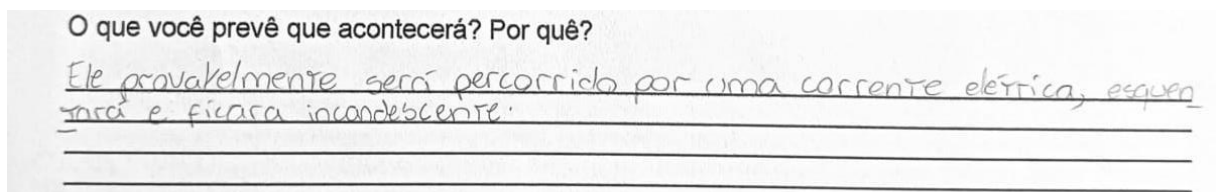 O que você prevê que acontecerá? Por quê?
Ele provavelmente será percorrido por uma corrente elétrica, esquen
tará e ficara incandescente.